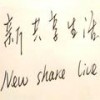 新共享生活
New share live